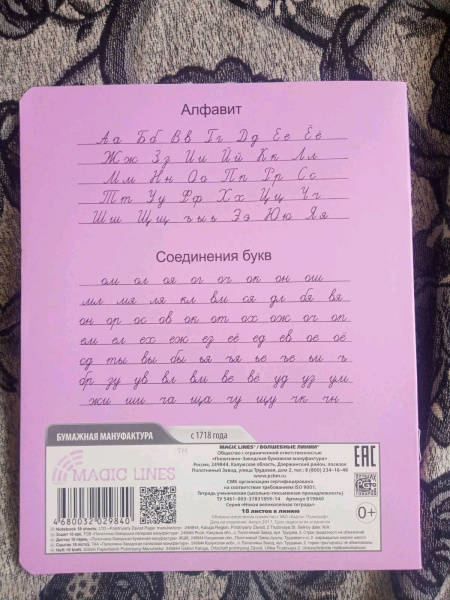 Алфавит
Аа Бб Вв Гг Дд Ее Ёё
Жж Зз Ии Йй Кк Лл
Мм Нн Оо Пп Рр Сс
Тт Уу Фф Хх Цц Чч
Шш Щщ ъыь Ээ Юю Яя
Соединения букв
ом ол оя ог оч ок он ош
мл мя ля кл вм ся дл бя вя
он ор ос ов ок от ох ож оч оп
ем ел ех еж ез её ед ев ое оё
од ты вы бы ья ъя ье ъе ьи ъ
бр зу ув вл вм ве вё уд уз ум
жи ши ча ща чу щу чк чн
БУМАЖНАЯ МАНУФАКТУРА с 1718 года
MAGIC LINES™
MAGIC LINES / ВОЛШЕБНЫЕ ЛИНИИ
Общество с ограниченной ответственностью
«Полотняно-Заводская бумажная мануфактура»
Россия, 249844, Калужская область, Дзержинский район, поселок
Полотняный Завод, улица Трудовая, дом 2, тел.: 8 (800) 234-16-48
www.pzbm.ru
СМК организации сертифицирована
на соответствие требованиям ISO 9001.
Тетрадь ученическая (школьно-письменная принадлежность)
ТУ 5461-003-37831899-14 Артикул 019840
18 листов в линию
EAC
0+
4680032029840